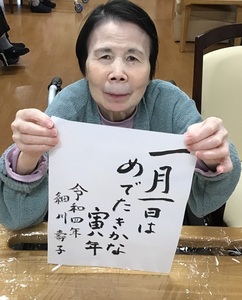 一月一日は
めでたきかな
寅年
令和四年
細川壽子